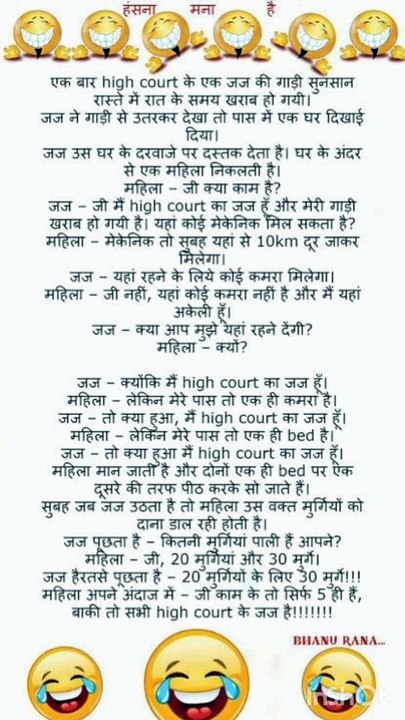 हंसना मना है
एक बार high court के एक जज की गाड़ी सुनसान
रास्ते में रात के समय खराब हो गयी।
जज ने गाड़ी से उतरकर देखा तो पास में एक घर दिखाई
दिया।
जज उस घर के दरवाजे पर दस्तक देता है। घर के अंदर
से एक महिला निकलती है।
महिला – जी क्या काम है?
जज – जी मैं high court का जज हूँ और मेरी गाड़ी
खराब हो गयी है। यहां कोई मेकेनिक मिल सकता है?
महिला – मेकेनिक तो सुबह यहां से 10km दूर जाकर
मिलेगा।
जज – यहां रहने के लिये कोई कमरा मिलेगा।
महिला – जी नहीं, यहां कोई कमरा नहीं है और मैं यहां
अकेली हूँ।
जज – क्या आप मुझे यहां रहने देंगी?
महिला – क्यों?
जज – क्योंकि मैं high court का जज हूँ।
महिला – लेकिन मेरे पास तो एक ही कमरा है।
जज – तो क्या हुआ, मैं high court का जज हूँ।
महिला – लेकिन मेरे पास तो एक ही bed है।
जज – तो क्या हुआ मैं high court का जज हूँ।
महिला मान जाती है और दोनों एक ही bed पर ऐक
दूसरे की तरफ पीठ करके सो जाते हैं।
सुबह जब जज उठता है तो महिला उस वक्त मुर्गियों को
दाना डाल रही होती है।
जज पूछता है – कितनी मुर्गियां पाली हैं आपने?
महिला – जी, 20 मुर्गियां और 30 मुर्गे।
जज हैरतसे पूछता है – 20 मुर्गियों के लिए 30 मुर्गे!!!
महिला अपने अंदाज में – जी काम के तो सिर्फ 5 ही हैं,
बाकी तो सभी high court के जज है!!!!!!!
BHANU RANA...
InShOt